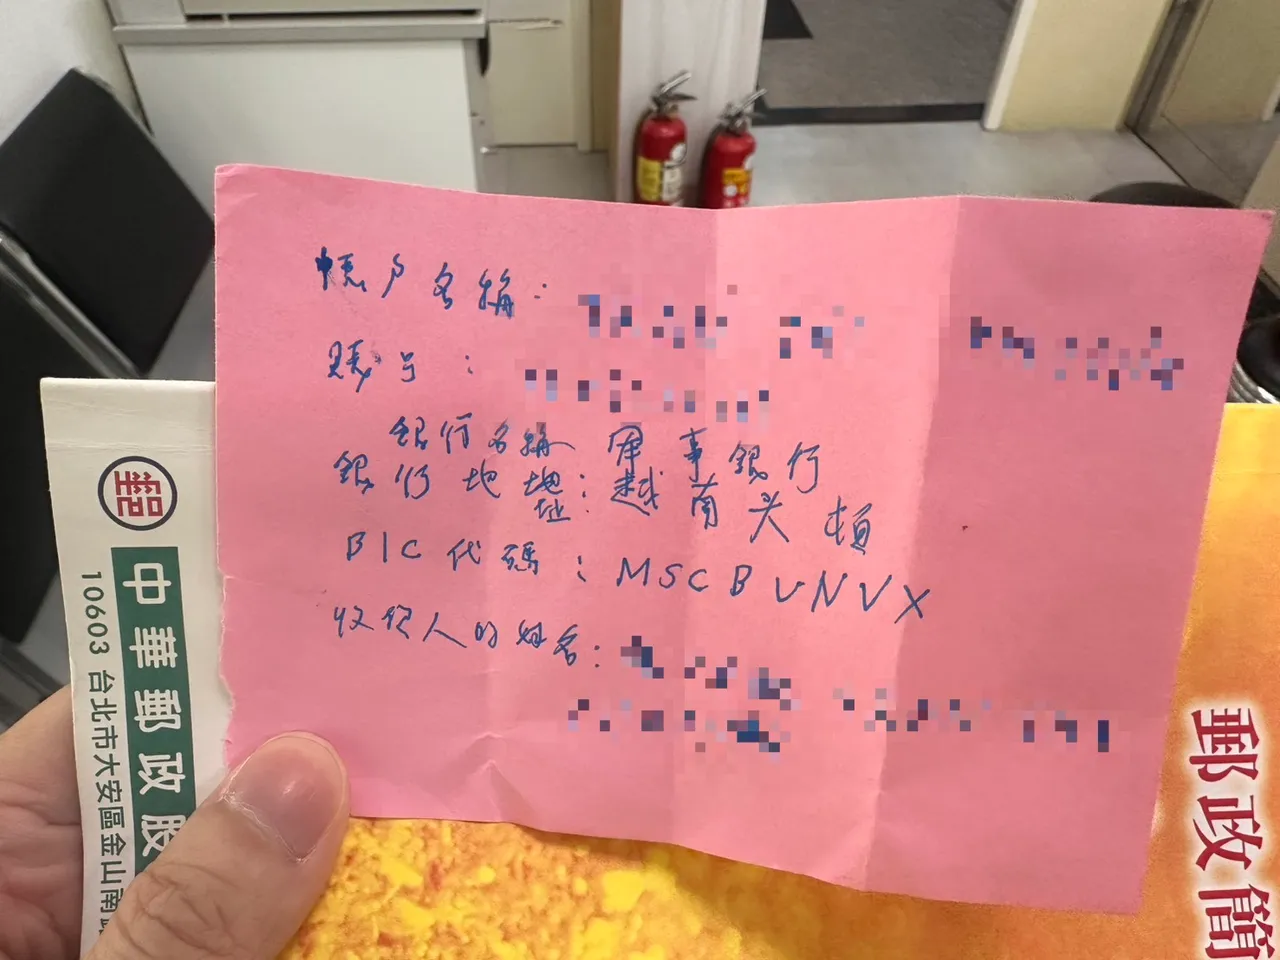 帳户名稱：
账号：
銀行名稱 軍事銀行
銀行地址：越南头頓
BIC代碼：MSCBVNVX
收锒人的姓名：
郵
中華郵政股
10603 台北市大安區金山南路
郵政簡